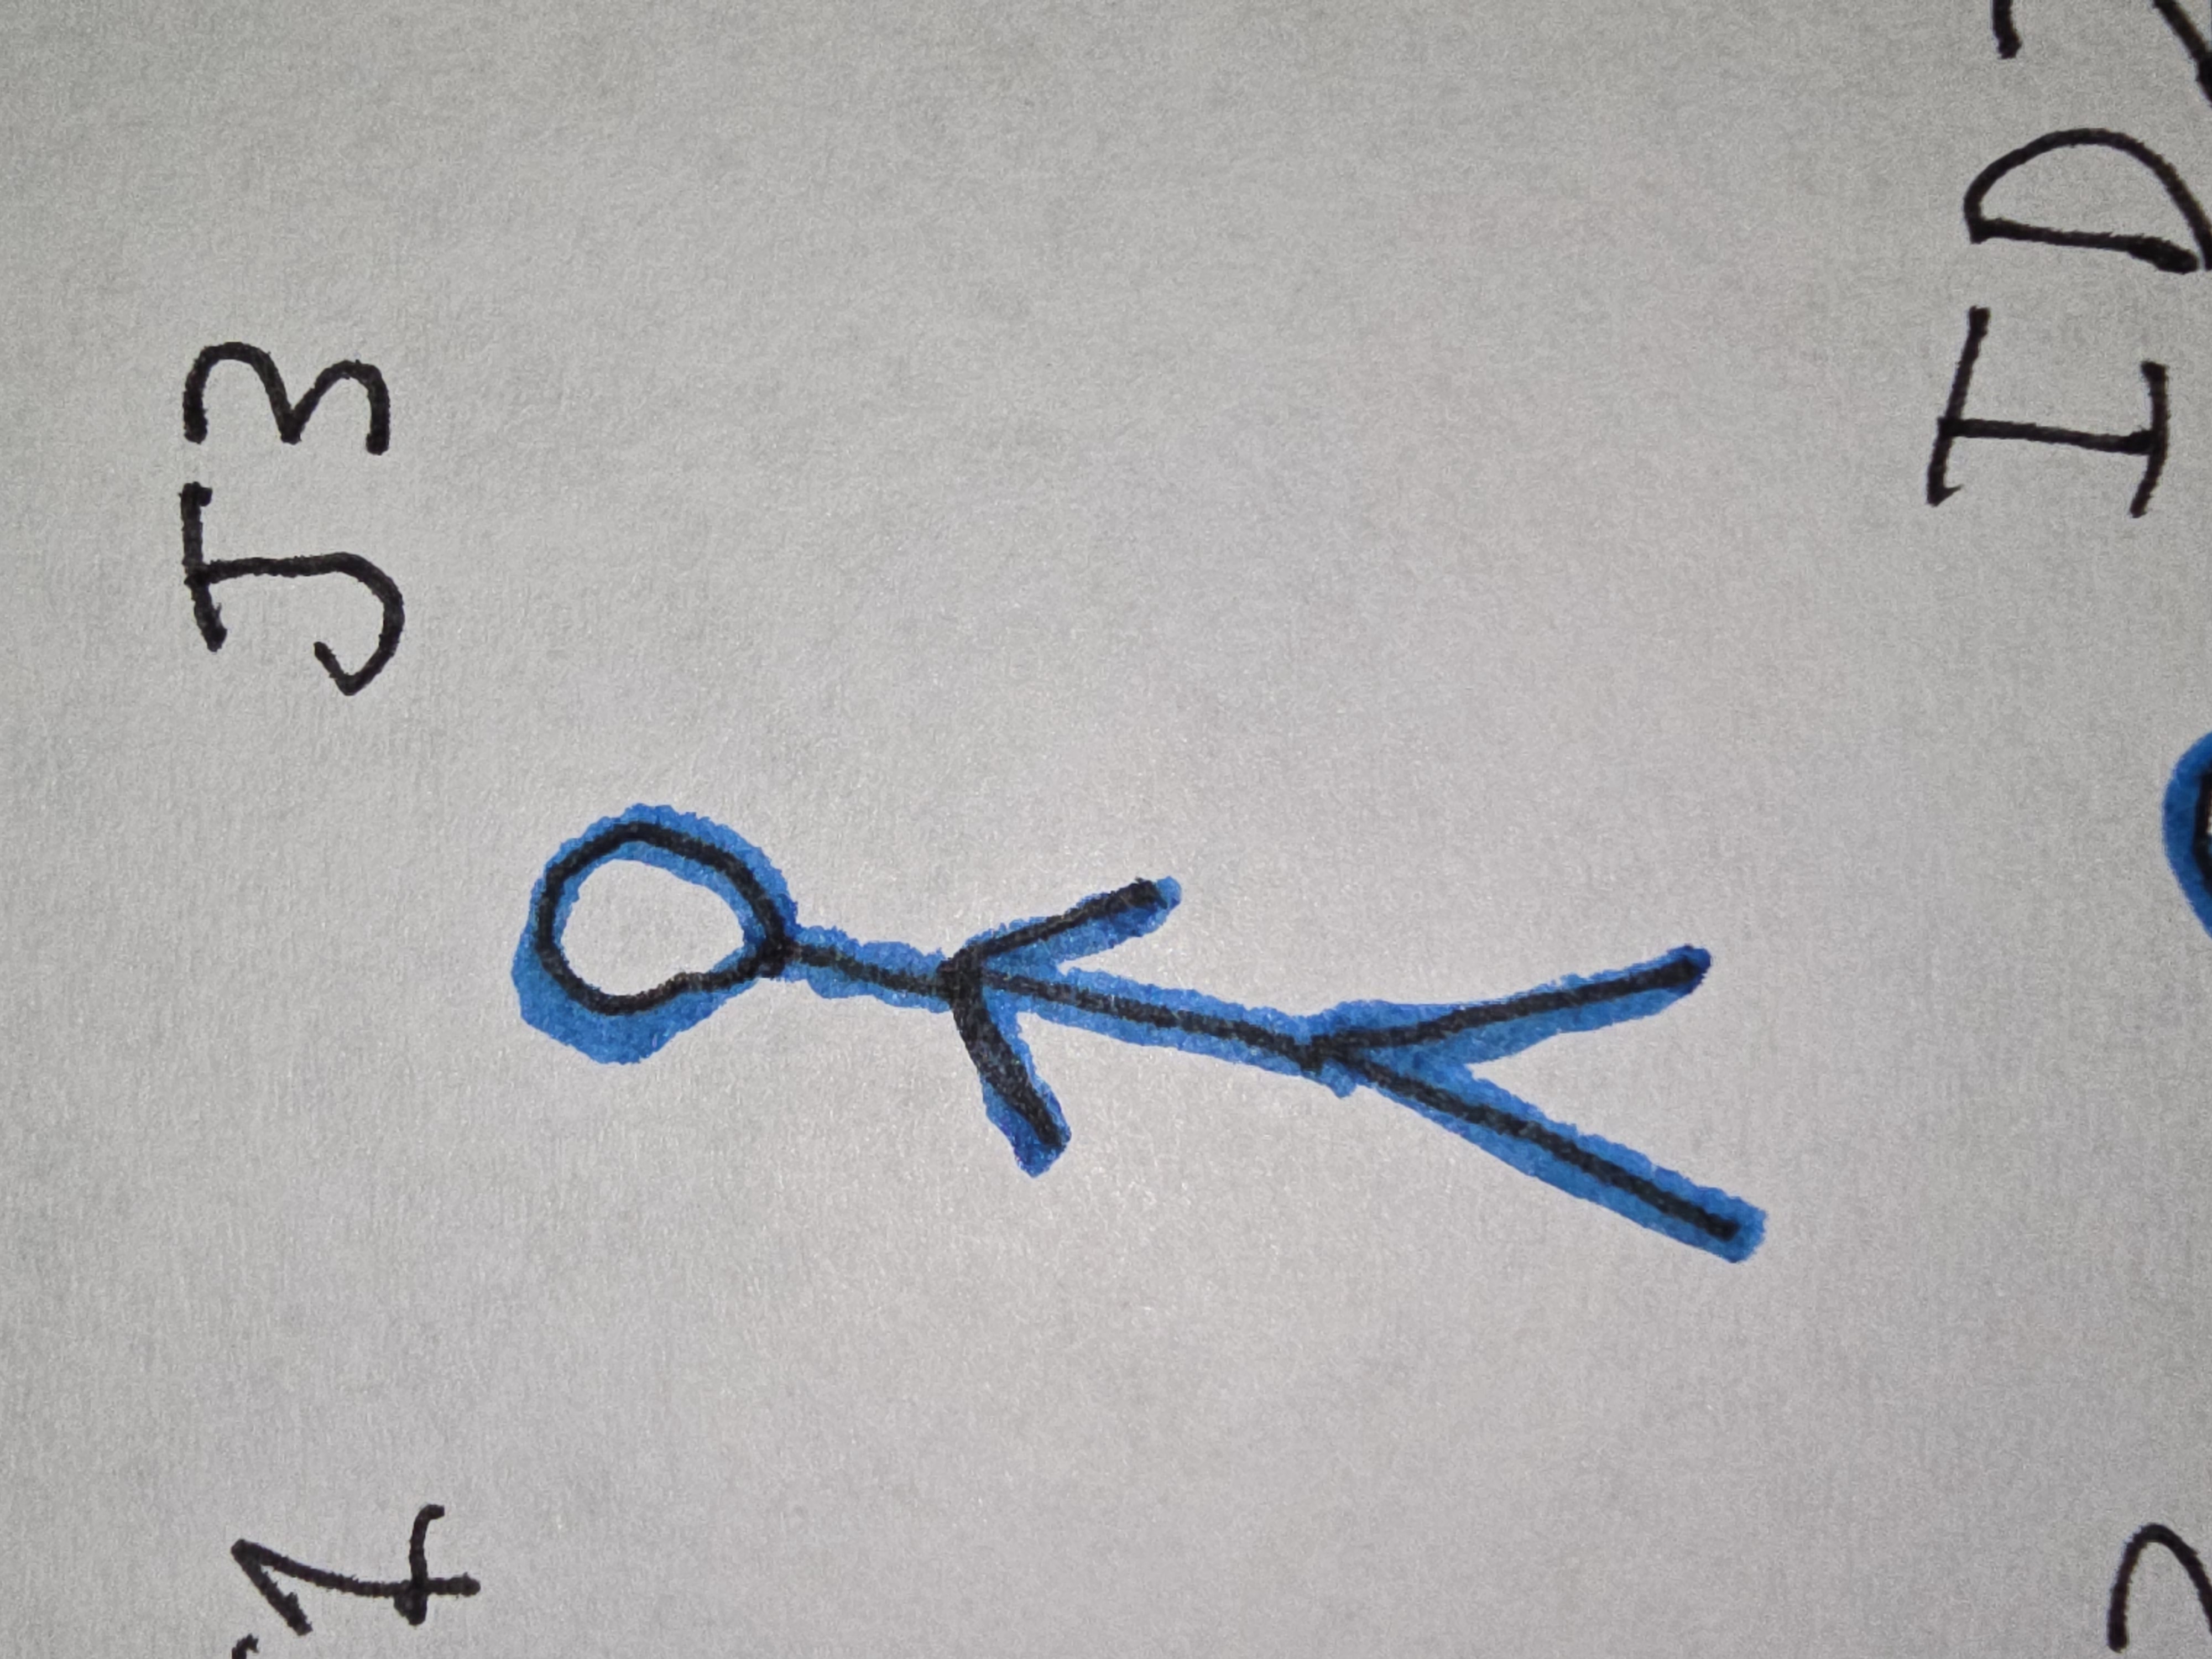 1 J3
ID